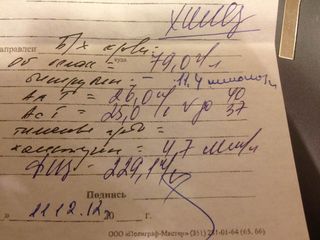 направлен
куда
Б/х крови:
Об белок = 79,0 г/л
билирубин – 11,4 ммоль/л
АлТ = 26,0 до 40
АсТ = 25,0 до 37
тимоловая проба =
холестерин = 4,7 ммоль/л
= 229,1
Подпись
« 11 12.12 20 г.
ООО «Полиграф-Мастер» (351) 281-01-64 (65, 66)